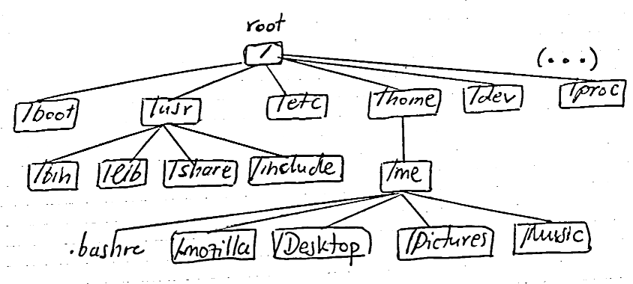 root
/
(...)
/boot /usr /etc /home /dev /proc
/bin /lib /share /include /me
.bashrc /.mozilla /Desktop /Pictures /Music